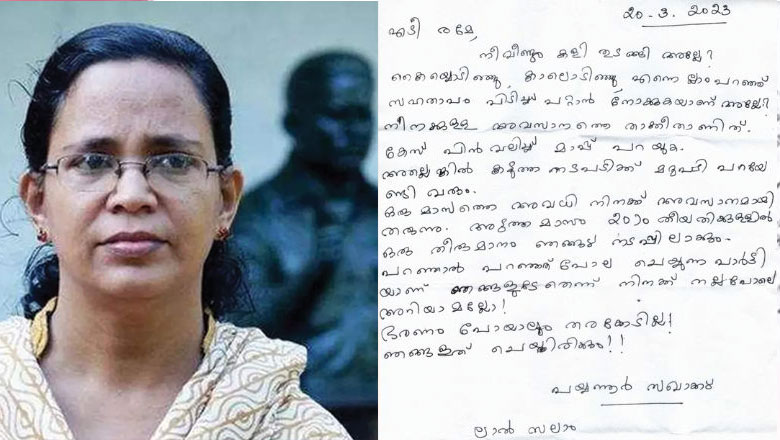 20-3. 2023
എടീ രമേ,
നീ വീണ്ടും കളി തുടങ്ങി അല്ലേ?
കൈയൊടിഞ്ഞു, കാലൊടിഞ്ഞു എന്നെല്ലാം പറഞ്ഞ്
സഹതാപം പിടിച്ചു പറ്റാൻ നോക്കുകയാണ് അല്ലേ?
നിനക്കുള്ള അവസാനത്തെ താക്കീതാണിത്.
കേസ് പിൻവലിച്ച് മാപ്പ് പറയുക.
അല്ലെങ്കിൽ കടുത്ത നടപടിക്ക് മറുപടി പറയേ-
ണ്ടി വരും.
ഒരു മാസത്തെ അവധി നിനക്ക് അവസാനമായി
തരുന്നു. അടുത്ത മാസം 20ാം തീയതിക്കുള്ളിൽ
ഒരു തീരുമാനം ഞങ്ങൾ നടപ്പിലാക്കും.
പറഞ്ഞാൽ പറഞ്ഞത് പോലെ ചെയ്യുന്ന പാർടി
യാണ് ഞങ്ങളുടേതെന്ന് നിനക്ക് നല്ലപോലെ
അറിയാമല്ലോ!
ഭരണം പോയാലും തരക്കേടില്ല!
ഞങ്ങളത് ചെയ്തിരിക്കും!!
പയ്യന്നൂർ സഖാക്കൾ
ലാൽ സലാം